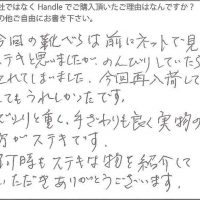 社ではなく Handle でご購入頂いたご理由はなんですか?
の他ご自由にお書き下さい。
今回の靴べらは前にネットで見
ステキと思いましたが、のんびりしていたら
れてしまいました。今回再入荷して
てもうれしかったです。
っしりと重く、手ざわりも良く実物の
方がステキです。
訂時もステキな物を紹介して
いただきありがとうございます。